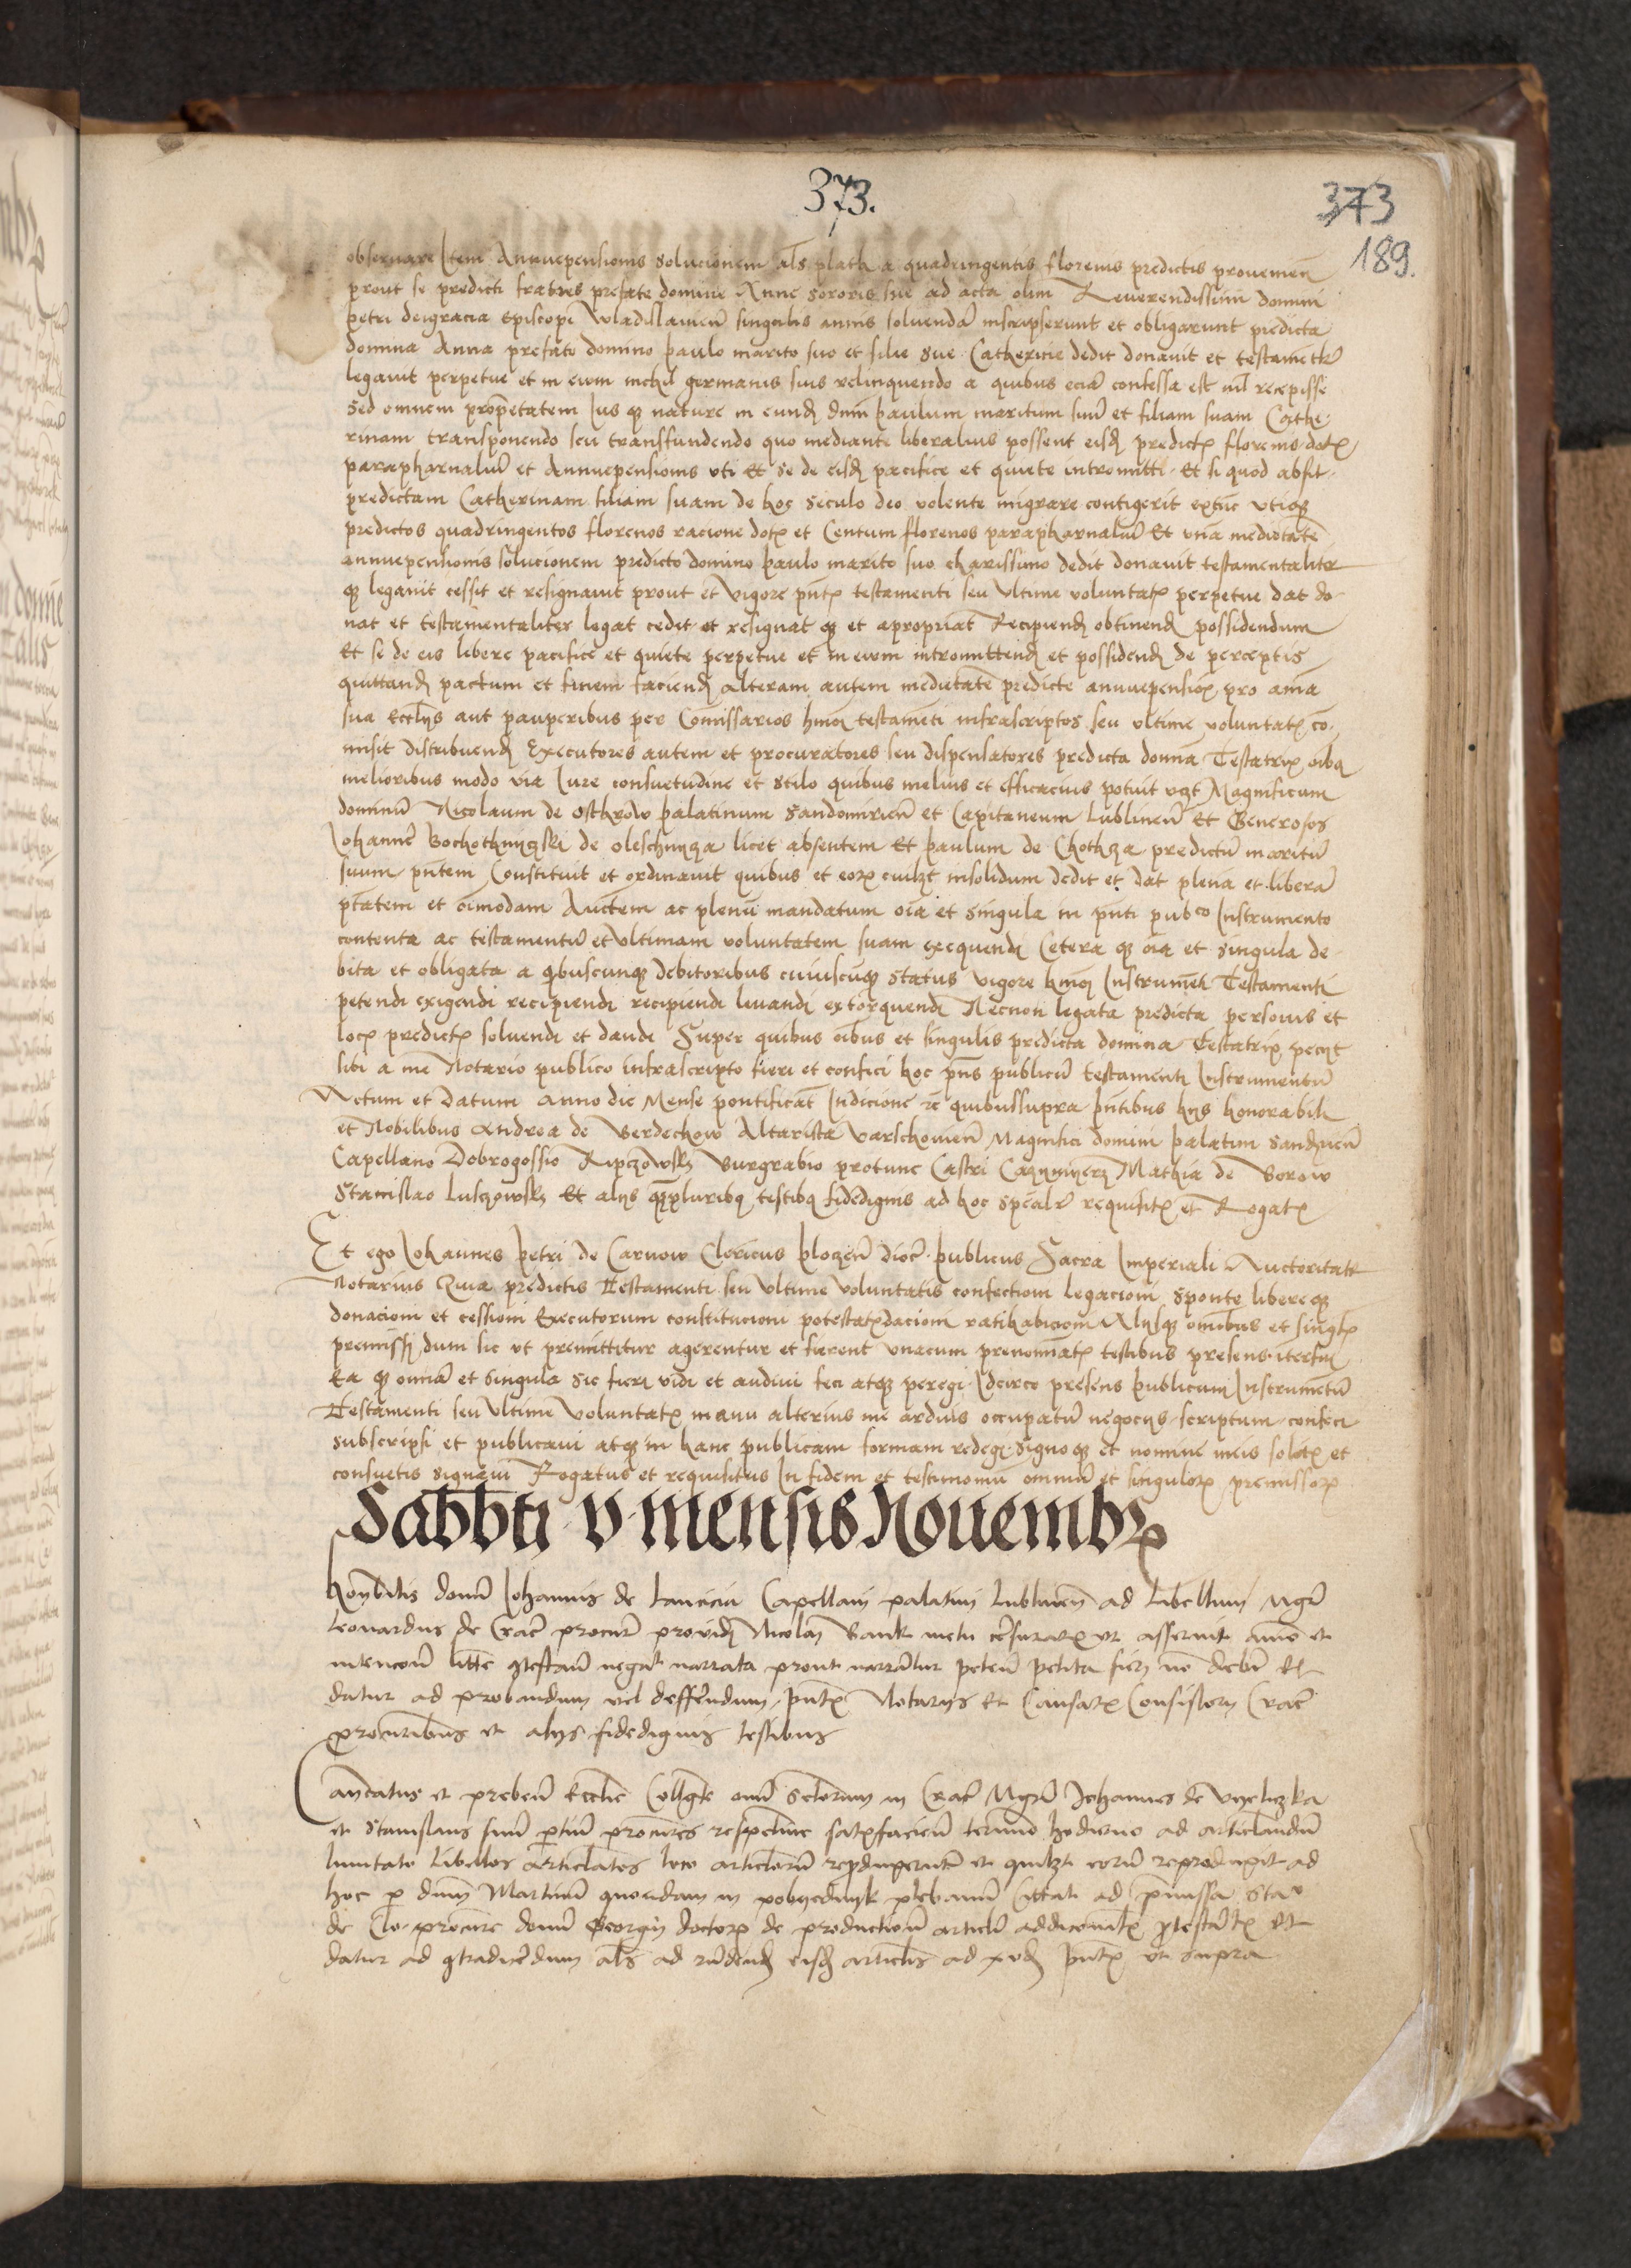 373.
373
189.
observare Item Annuepensionis solucionem als plath a quadringentis florenis predictis provenien̄
prout se predicti fratres prefate domine Anne sororis sue ad acta olim Reverendissimi domini
petri deigracia Episcopi Wladislavien̄ singulis annis solvendā inscripserunt et obligarunt predicta
domina Anna prefato domino paulo marito suo et filie sue Catherine dedit donavit et testamētlr̄
legavit perpetue et in evum nichil germanis suis relinquendo a quibus eciā confessa est nil recepisse
Sed omnem proprietatem Ius qꝫ nature in eundꝫ dnm̄ paulum maritum suū et filiam suam Cathe-
rinam transponendo seu transfundendo quo mediante liberalius possent eisdꝫ predictꝭ florenis dotꝭ
parapharnaliū et Annuepensionis uti Et se de eisdꝫ pacifice et quiete intromitti Et si quod absit
predictam Catherinam filiam suam de hoc seculo deo volente migrare contigerit extūc utiqꝫ
predictos quadringentos florenos racione dotꝭ et Centum florenos parapharnaliū Et unā medietatē
annuepensionis solucionem predicto domino paulo marito suo charissimo dedit donavit testamentaliter
qꝫ legavit cessit et resignavit prout et vigore pn̄tꝭ testamenti seu ultime voluntatꝭ perpetue dat do-
nat et testamentaliter legat cedit et resignat qꝫ et apropriat Recipiendꝫ obtinendꝫ possidendum
Et se de eis libere pacifice et quiete perpetue et in evum intromittendꝫ et possidendꝫ de perceptis
quittandꝫ pactum et finem faciendꝫ alteram autem medietatē predicte annuepensionꝭ pro aīa
sua Eccl̄ijs aut pauperibus per Comissarios hmōi testamēti infrascriptos seu ultime voluntatꝭ co-
misit distribuendꝫ Executores autem et procuratores seu dispensatores predicta domna Testatrix oībꝫ
melioribus modo via Iure consuetudine et stilo quibus melius et efficacius potuit Magnificum
dominū Nicolaum de Osthrow palatinum Sandomirien̄ et Capitaneum Lublinen̄ Et Generosos
Iohannē Bochothniczski de oleschnycza licet absentem Et paulum de Chothcza predictū maritū
suum pn̄tem Constituit et ordinavit quibus et eorꝭ cuilꝫt insolidum dedit et dat plenā et liberā
ptātem et oīmodam Auctem ac plenū mandatum oīa et singula in pn̄ti pub͞co Instrumento
contenta ac testamentū et ultimam voluntatem suam exequendi Cetera qꝫ oīa et singula de-
bita et obligata a qibuscunqꝫ debitoribus cuiuscūqꝫ status vigore hmōi Instrumēti Testamenti
petendi exigendi recipiendi recipiendi levandi extorquendi Necnon legata predicta personis et
locꝭ predictꝭ solvendi et dandi Super quibus oībus et singulis predicta domina Testatrix pecijt
sibi a me Notario publico infrascripto fieri et confici hoc pn̄s publicū testamenti Instrumentū
Actum et Datum Anno die Mense pontificat̄ Indicione ꝛc quibussupra pn̄tibus hijs honorabili
et Nobilibus Andrea de Berdechow Altarista Varschovien̄ Magnifici domini palatini Sandꝫrien̄
Capellano Dobrogossio Burgrabio protunc Castri Mathia de Borow
Stanislao Et alijs qꝫpluribꝫ testibꝫ fidedignis ad hoc spēalr̄ requisitꝭ et Rogatꝭ
Et ego Iohannes petri de Carnow Clericus plocen̄ dioc̄ publicus Sacra Imperiali Auctoritate
Notarius Quia predictis Testamenti seu ultime voluntatis confectioni legacioni sponte libereqꝫ
donacioni et cessioni Executorum constitucioni potestatꝭdacioni ratihabicioni Alijsqꝫ omnibus et singlꝭ
premissꝭ dum sic ut premittitur agerentur et fierent unacum prenominatꝭ testibus presens iterfui
Ea qꝫ omnia et singula sic fieri vidi et audivi feci atqꝫ peregi Idcirco presens publicum Instrumētū
Testamenti seu ultime voluntatꝭ manu alterius me arduis occupatū negocijs scriptum confeci
subscripsi et publicavi atqꝫ in hanc publicam formam redegi signo qꝫ et nomine meis solitꝭ et
consuetis signavi Rogatus et requisitus In fidem et testimoniū omniū et singulorꝭ premissorꝭ
Sabbti v mensis Novembrꝭ
honorabilis domī Iohannis de Lancicia Capellani palatini Lublinen̄ ad Libellum Mgr̄
Leonardus de Crac̄ procur̄ providi Nicolai Bank metu ut asseruit animo et
intencōe litē ꝯtestan̄ negavit narrata prout narrantur peten̄ petita fieri nō debere Et
datur ad probandum vel deffendendum pn̄tꝭ Notarijs Et Causarꝭ Consistorij Crac̄
procuribus et alijs fidedignis testibus
Candatus et preben̄ Eccl̄ie Collgte omī Sctorum in Crac̄ Mgr̄ Iohannes de Vyeliczka
et Stanislaus suarū ptiū procur̄es respective satꝭfacien̄ termīo hodierno ad articlandū
Libellos articlatos loco articlorū et quilꝫt eorū reproduxit ad
hoc p dnm̄ Martinū in plebanū Cittatꝭ ad pmissa Stan̄
de Clo procur̄e domī Georgij doctorꝭ de productiōe articlꝭ ꝯtestatꝭ Et
datur ad ꝯtradicēdum als ad rn̄dendꝫ eisdꝫ articlis ad pn̄tꝭ ut supra